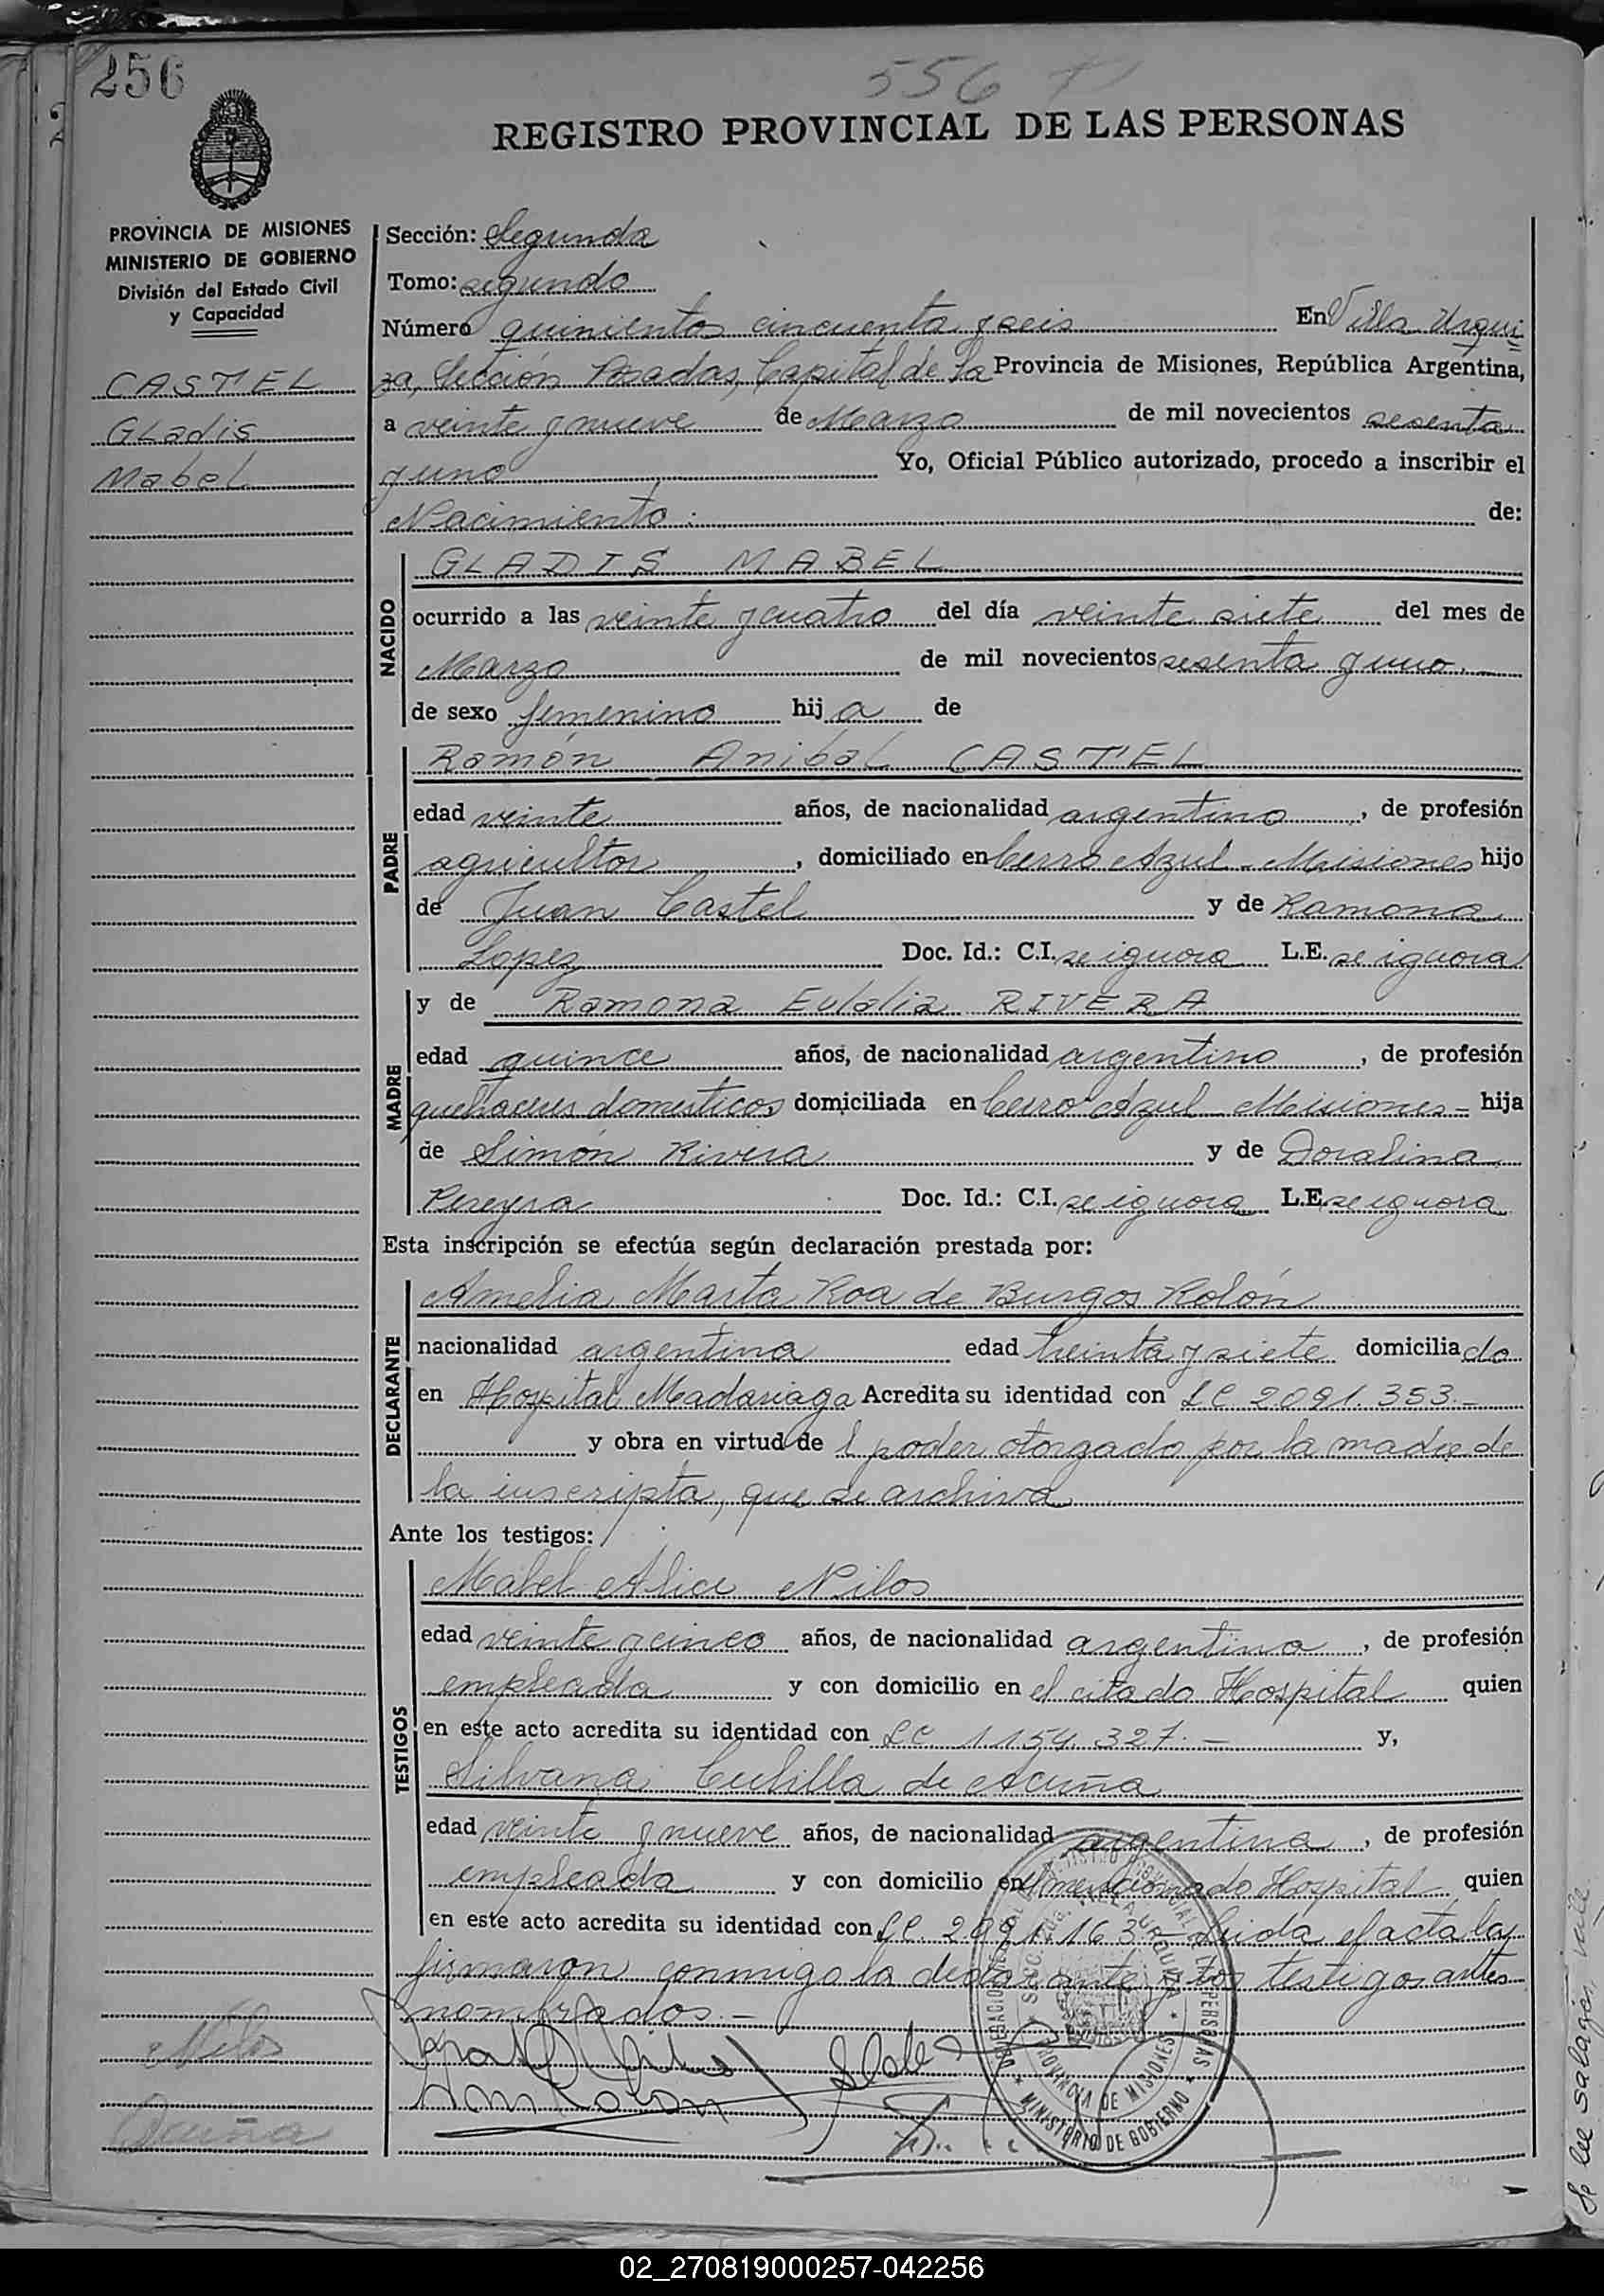 256
556
REGISTRO PROVINCIAL DE LAS PERSONAS
PROVINCIA DE MISIONES
MINISTERIO DE GOBIERNO
División del Estado Civil
y Capacidad
CASTEL
GLadis
MabeL
Sección: Segunda
Tomo: segundo
Número quinientos cincuenta y seis En Villa Urqui
za, Sección Posadas, Capital de la Provincia de Misiones, República Argentina,
a veinte y nueve de Marzo de mil novecientos sesenta
y uno Yo, Oficial Público autorizado, procedo a inscribir el
Nacimiento: de:
NACIDO
GLADIS MABEL
ocurrido a las veinte y cuatro del día veinte siete del mes de
Marzo de mil novecientos sesenta y uno.
de sexo femenino hija de
PADRE
Ramón AnibaL CASTEL
edad veinte años, de nacionalidad argentino, de profesión
agricultor, domiciliado en Cerro Azul - Misiones hijo
de Juan Castel y de Ramona
Lopez Doc. Id.: C.I. se ignora L.E. se ignora
MADRE
y de Ramona Eulalia RIVERA
edad quince años, de nacionalidad argentino, de profesión
quehaceres domesticos domiciliada en Cerro Azul Misiones - hija
de Simón Rivera y de Doralina
Pereyra Doc. Id.: C.I. se ignora L.E. se ignora
Esta inscripción se efectúa según declaración prestada por:
DECLARANTE
Amelia Marta Roa de Burgos Rolón
nacionalidad argentina edad treinta y siete domiciliado
en Hospital Madariaga Acredita su identidad con LC 2091.353.-
y obra en virtud de l poder otorgado por la madre de
la inscripta, que se archiva
Ante los testigos:
TESTIGOS
Mabel Alice Nilos
edad veinte y cinco años, de nacionalidad argentina, de profesión
empleada y con domicilio en el citado Hospital quien
en este acto acredita su identidad con LC 1.154.327.- y,
Silvana Cubilla de Acuña
edad veinte y nueve años, de nacionalidad argentina, de profesión
empleada y con domicilio en el mencionado Hospital quien
en este acto acredita su identidad con LC. 2091.163- Leida el acta la
firmaron conmigo la declarante y los testigos antes
nombrados.-
Nilos
Acuña
PROVINCIA DE MISIONES
MINISTERIO DE GOBIERNO
Se lee salazar vale
02_270819000257-042256